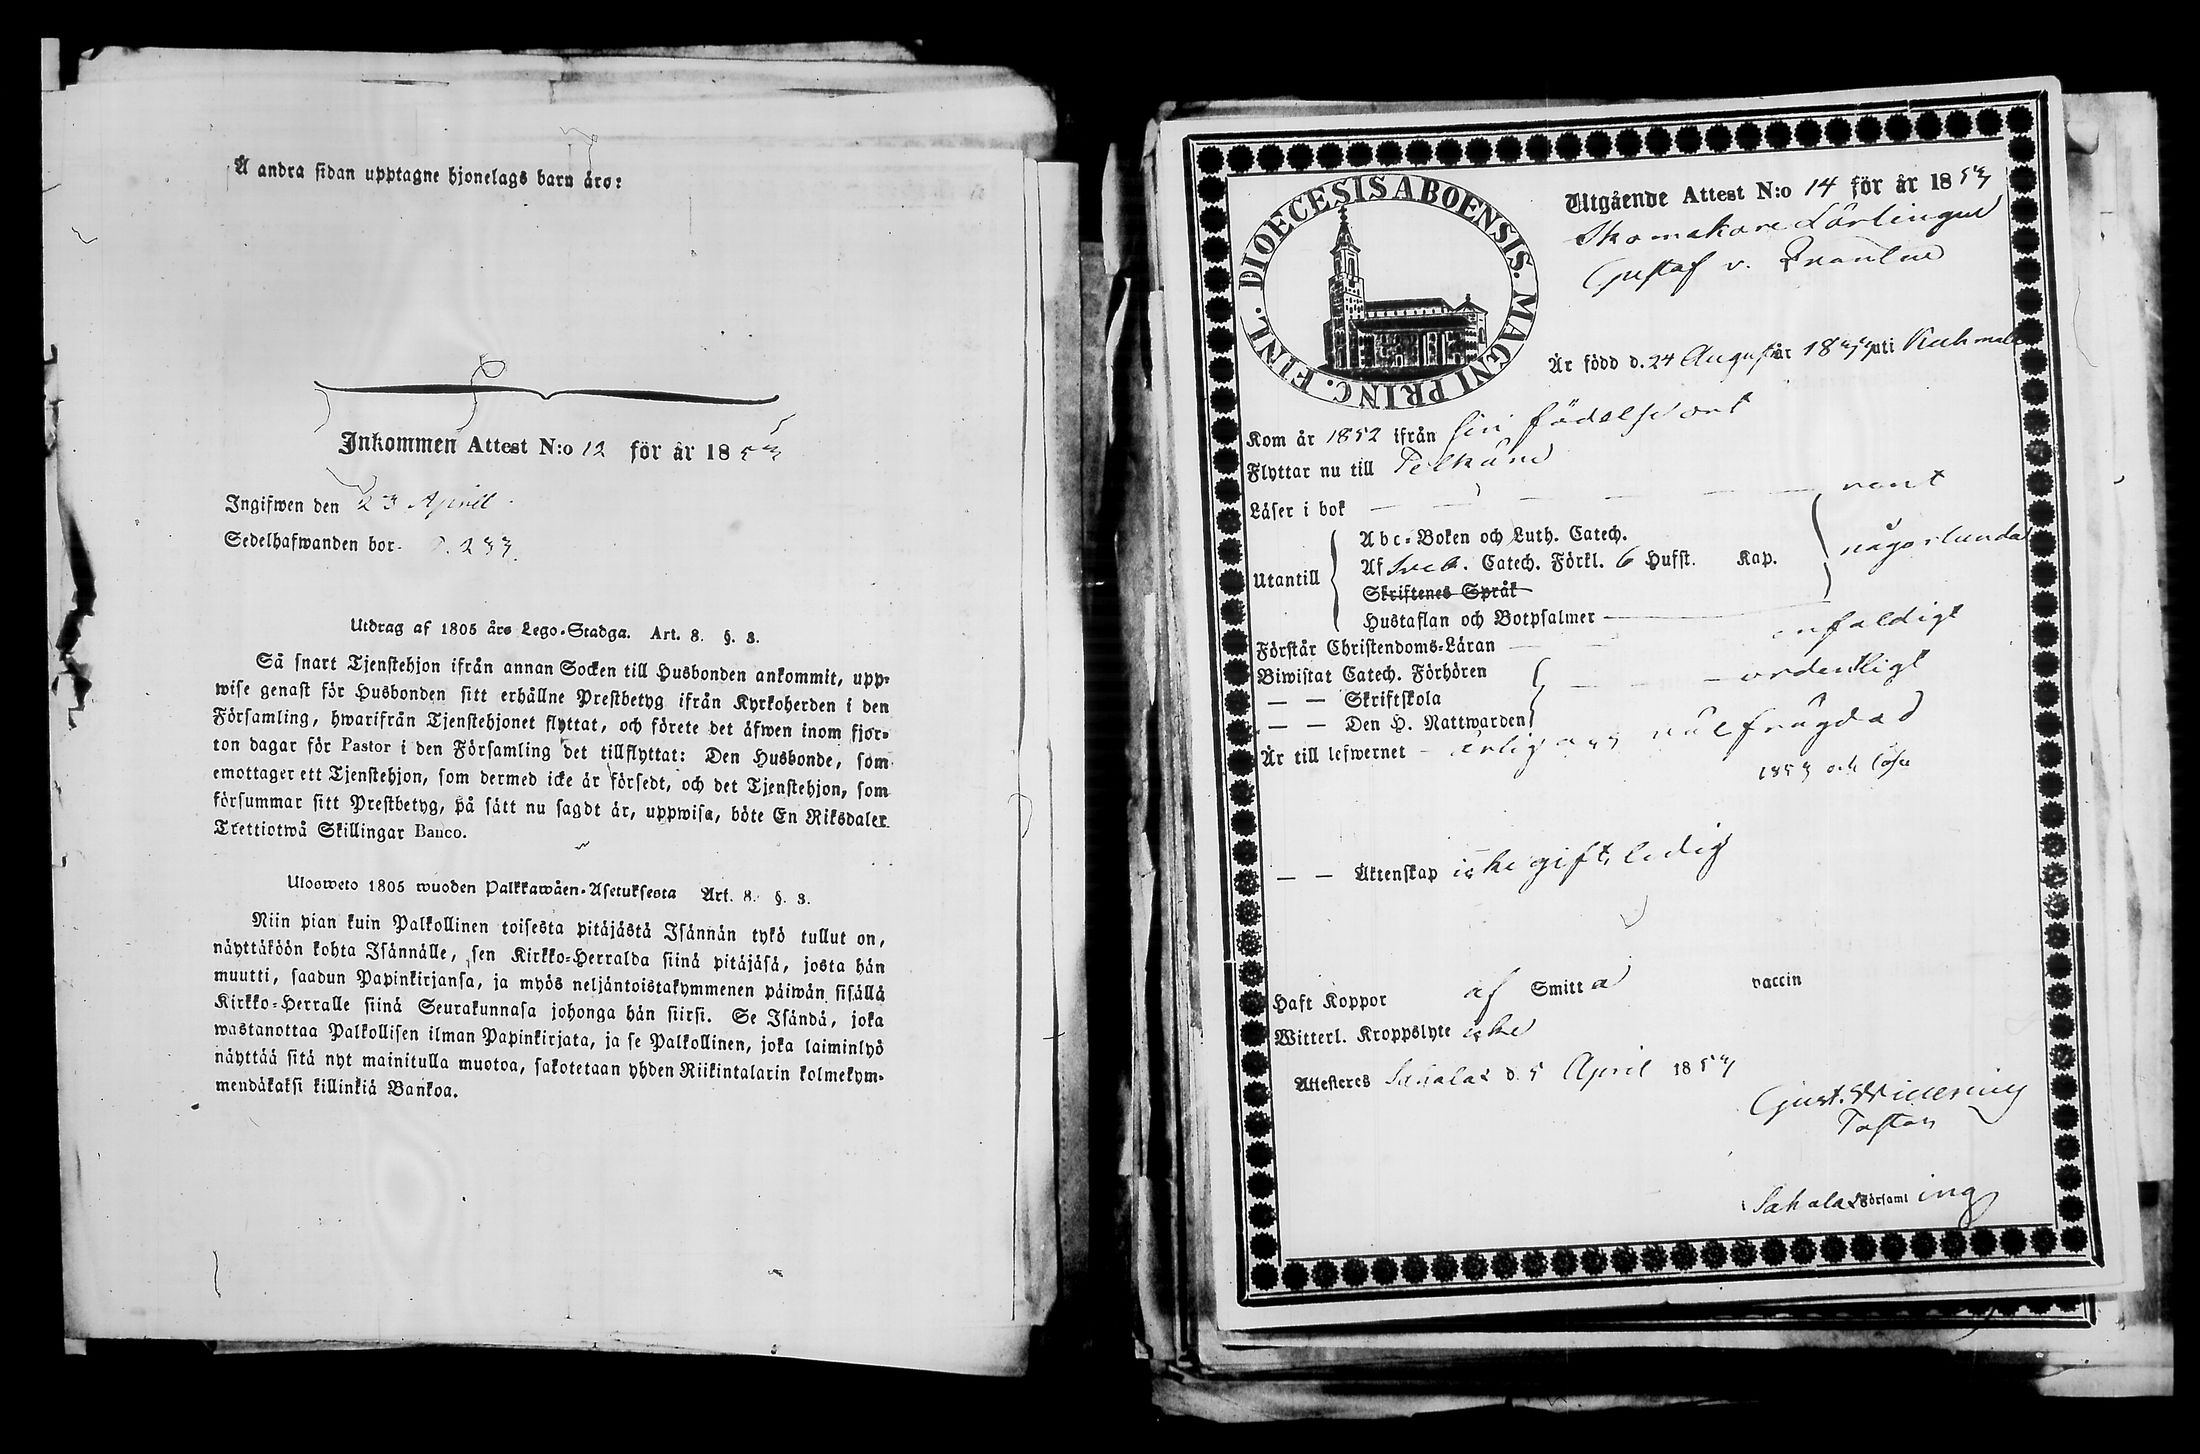 Å andra sidan upptagne hjonelags barn äro:
Inkommen Attest N:o 12 för år 1853
Ingifwen den 23 April
Sedelhafwanden bor. P. 233.
Utdrag af 1805 års Lego-Stadga. Art. 8. §. 3.
Så snart Tjenstehjon ifrån annan Socken till Husbonden ankommit, upp-
wise genast för Husbonden sitt erhållne Prestbetyg ifrån Kyrkoherden i den
Församling, hwarifrån Tjenstehjonet flyttat, och förete det äfwen inom fjor-
ton dagar för Pastor i den Församling det tillflyttat: Den Husbonde, som
emottager ett Tjenstehjon, som dermed icke är försedt, och det Tjenstehjon, som
försummar sitt Prestbetyg, på sätt nu sagdt är, uppwisa, böte En Riksdaler
Trettiotwå Skillingar Banco.
Ulosweto 1805 wuoden Palkkawäen-Asetuksesta Art. 8. §. 3.
Niin pian kuin Palkollinen toisesta pitäjästä Isännän tykö tullut on,
näyttäköön kohta Isännälle, sen Kirkko-Herralda siinä pitäjäsä, josta hän
muutti, saadun Papinkirjansa, ja myös neljäntoistakymmenen päiwän sisällä
Kirkko-Herralle siinä Seurakunnasa johonga hän siirsi. Se Isändä, joka
wastanottaa Palkollisen ilman Papinkirjata, ja se Palkollinen, joka laiminlyö
näyttää sitä nyt mainitulla muotoa, sakotetaan yhden Riikintalarin kolmekym-
mendäkaksi killinkiä Bankoa.
DIOECESIS ABOENSIS. MAGNI PRINC. FINL.
Utgående Attest N:o 14 för år 1853
Skomakare Lärlingen
Gustaf
Är född d. 24 August år 1833 uti Kuhmalaks
Kom år 1852 ifrån sin födelse ort
Flyttar nu till Pelkäne
Läser i bok — — — — — rent
Utantill
Abc-Boken och Luth. Catech.
Af Sveb. Catech. Förkl. 6 Hufst. Kap. någorlunda
Skriftenes Språk
Hustaflan och Botpsalmer
Förstår Christendoms-Läran — enfaldigt
Biwistat Catech. Förhören
— — Skriftskola — ordentligt
— — Den H. Nattwarden
Är till lefwernet — ärlig och välfrägdad
1853 och
— — Äktenskap icke gift, ledig
Haft Koppor af Smitta vaccin
Witterl. Kroppslyte icke
Attesteres Sahalax d. 5 April 1853
Gust.
Pastor
Sahalax Församling